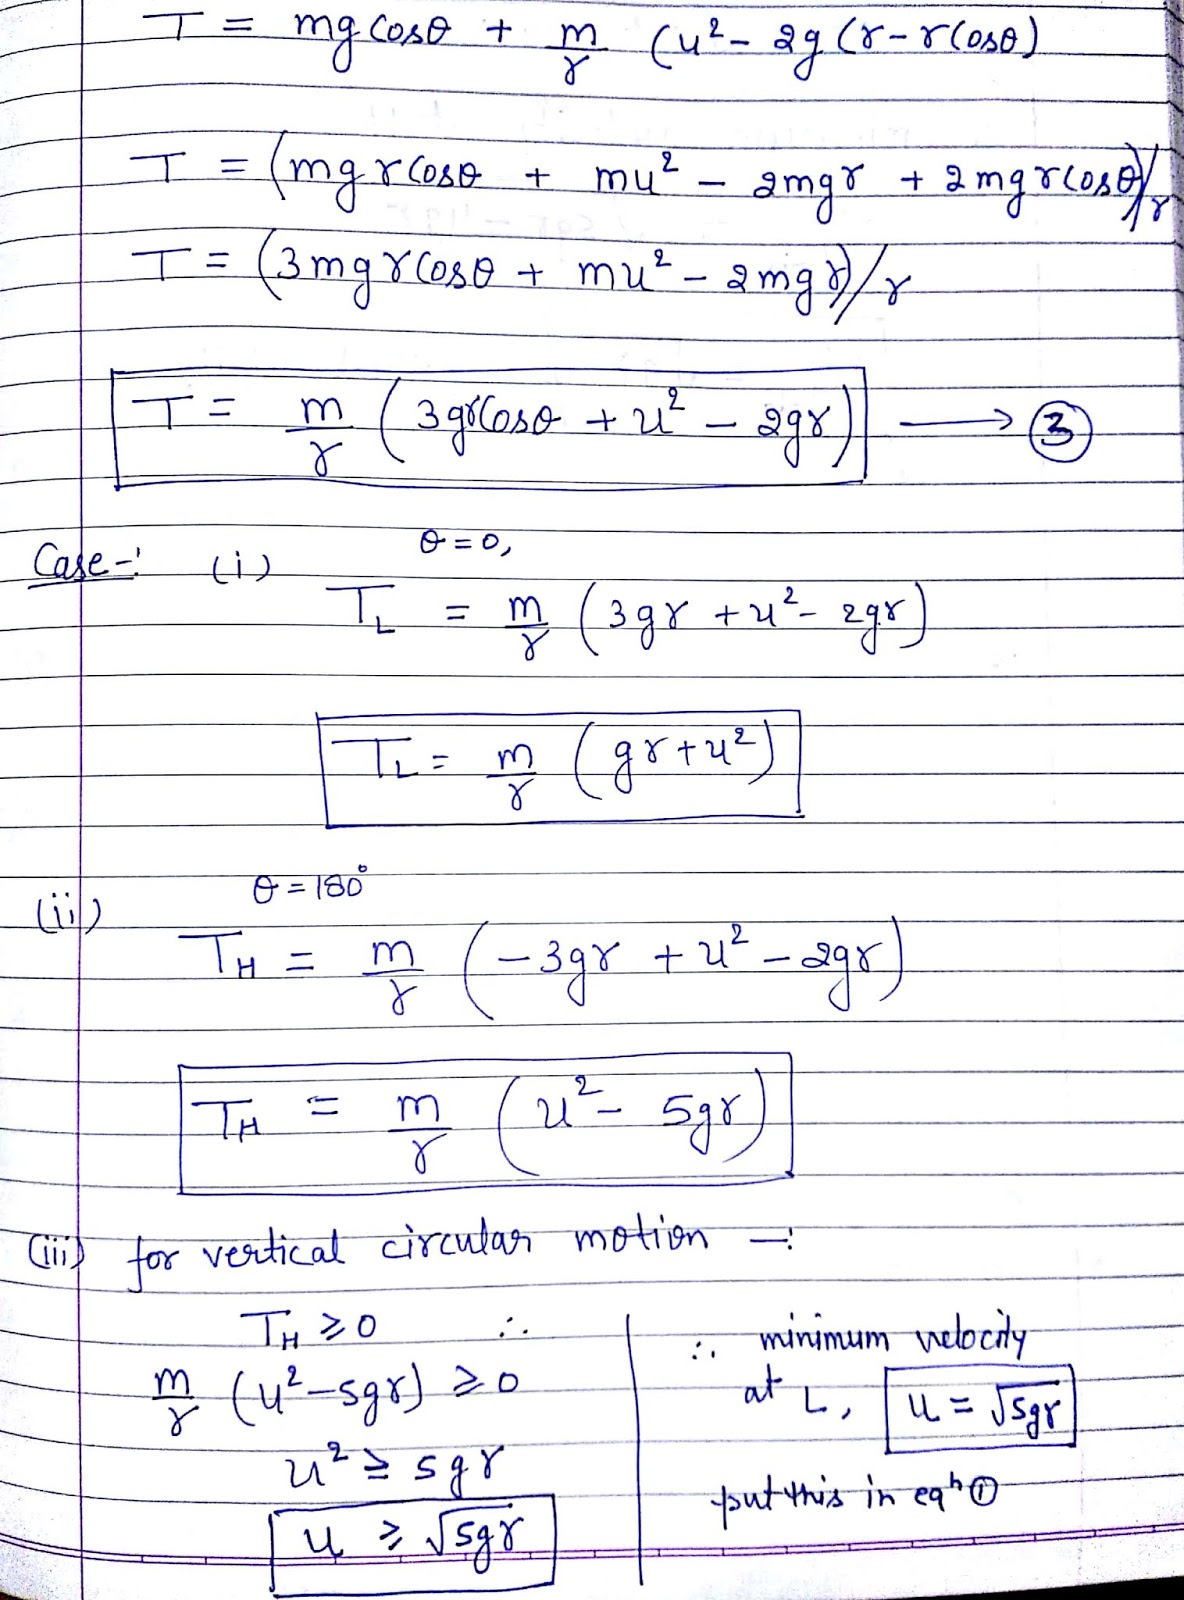 T = mg cosθ + m/r (u² - 2g (r - r cosθ)
T = (mg r cosθ + mu² - 2mgr + 2mgr cosθ)/r
T = (3mgr cosθ + mu² - 2mgr)/r
T = m/r (3gr cosθ + u² - 2gr) → ③
Case-: (i) θ = 0,
T_L = m/r (3gr + u² - 2gr)
T_L = m/r (gr + u²)
(ii) θ = 180°
T_H = m/r (-3gr + u² - 2gr)
T_H = m/r (u² - 5gr)
(iii) for vertical circular motion -:
T_H ≥ 0 ∴
m/r (u² - 5gr) ≥ 0
u² ≥ 5gr
u ≥ √5gr
∴ minimum velocity
at L, u = √5gr
put this in eqⁿ ①